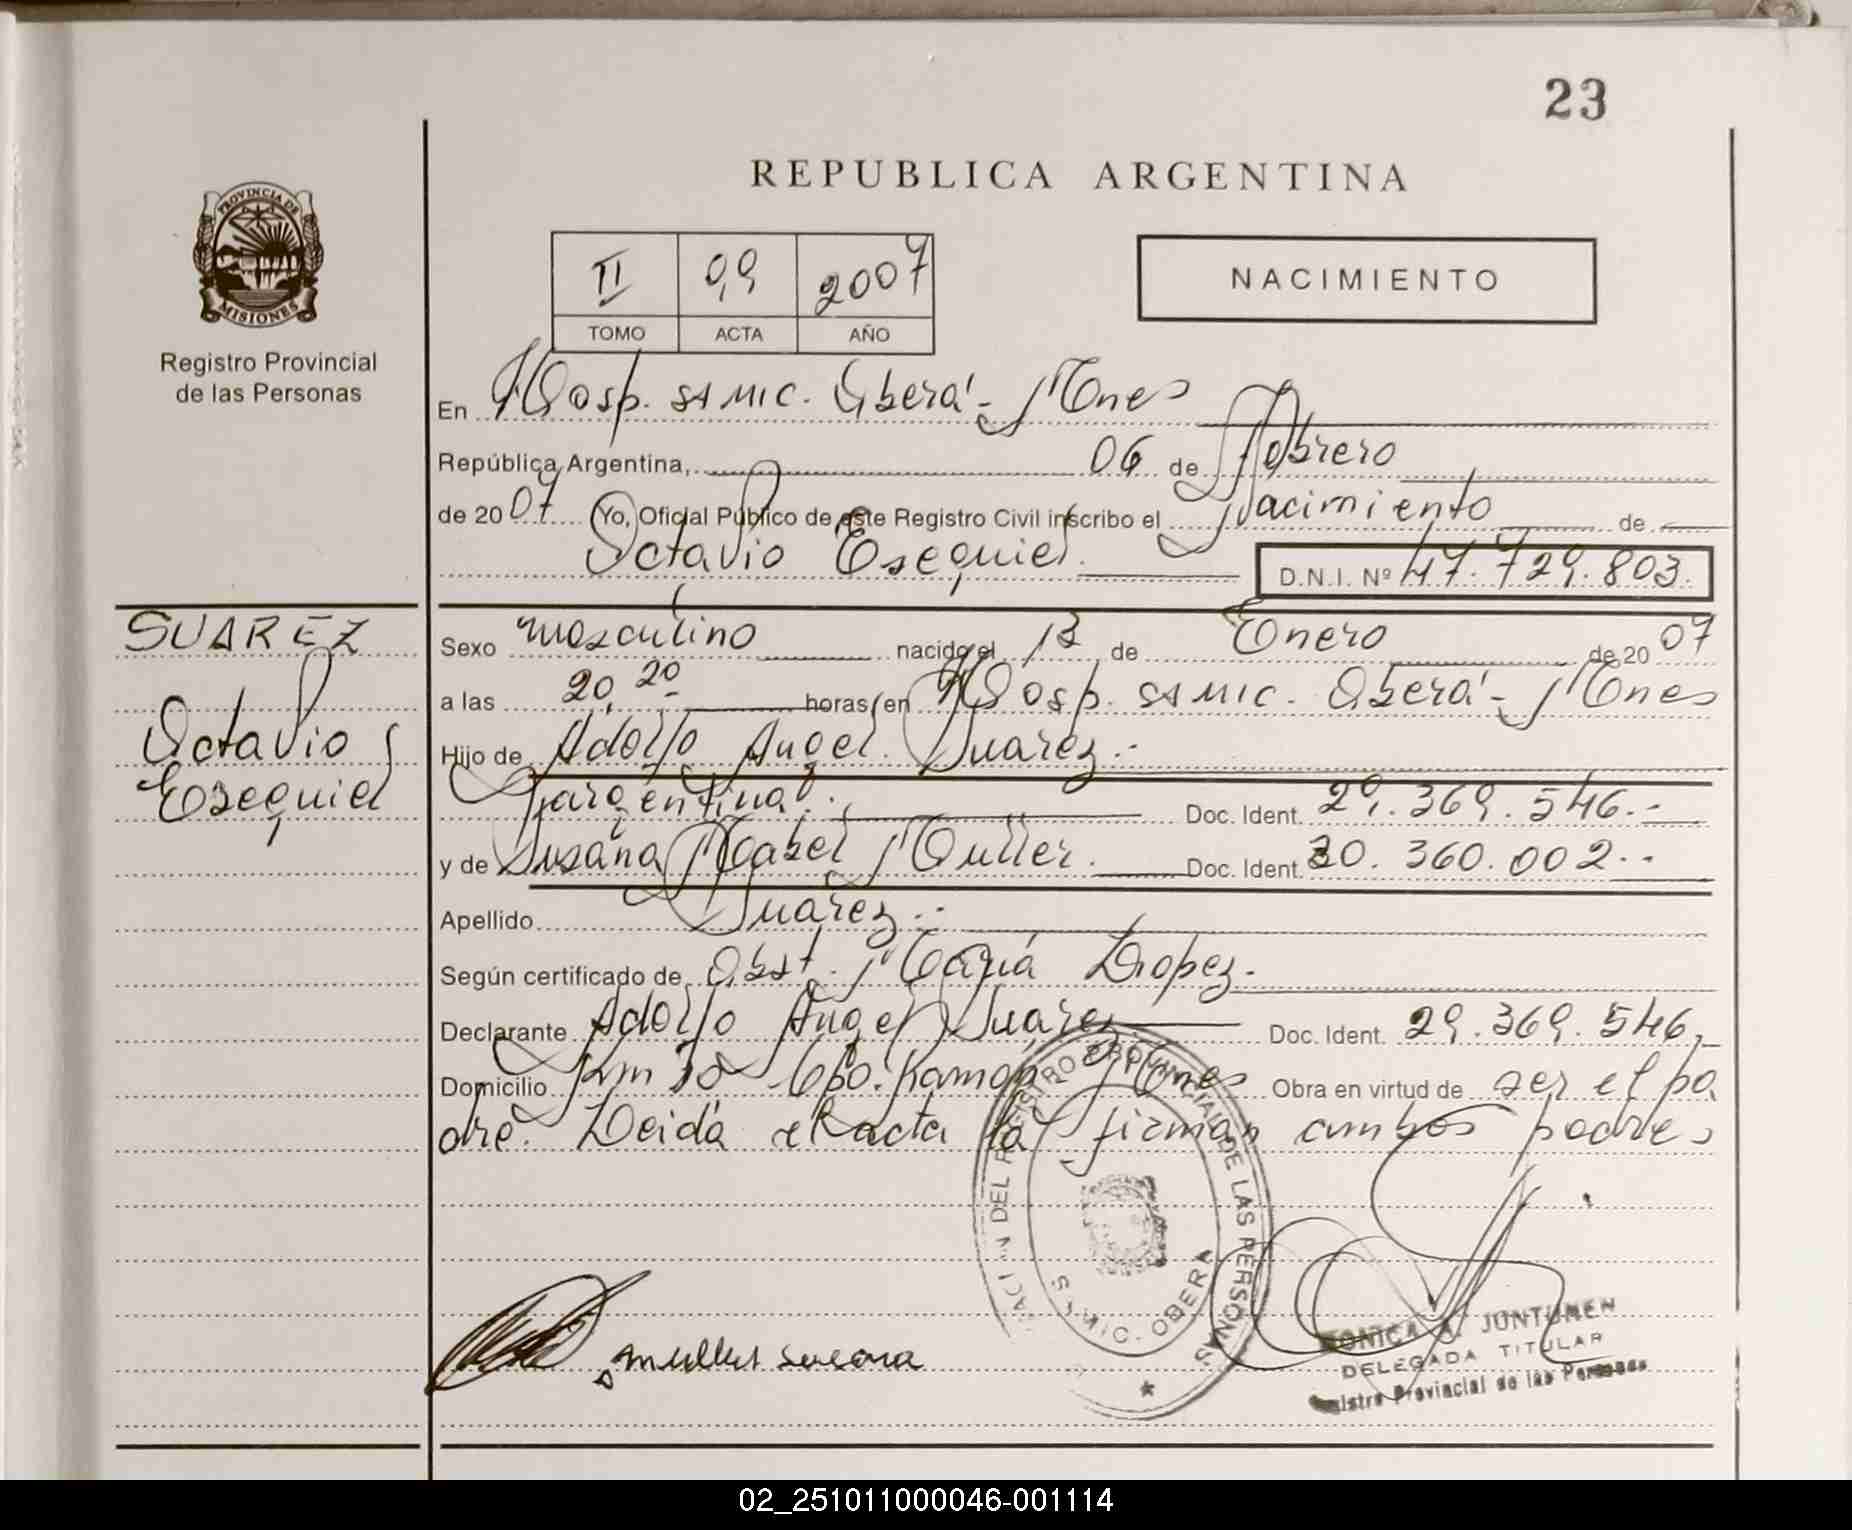 23
REPUBLICA ARGENTINA
PROVINCIA DE
MISIONES
Registro Provincial
de las Personas
II 99 2007
TOMO ACTA AÑO
NACIMIENTO
En Hosp. SAMIC. Oberá - Mnes
República Argentina, 06 de Febrero
de 2007 Yo, Oficial Público de este Registro Civil inscribo el Nacimiento de
Octavio Esequiel. D.N.I. Nº 47.729.803.
SUAREZ
Octavio
Esequiel
Sexo masculino nacido el 13 de Enero de 2007
a las 20,20 horas en Hosp. SAMIC. Oberá - Mnes
Hijo de Adolfo Angel Suarez.-
argentina. Doc. Ident. 29.369.546.-
y de Susana Mabel Muller. Doc. Ident. 30.360.002.-
Apellido Suarez.-
Según certificado de Obst. María Lopez.
Declarante Adolfo Angel Suarez Doc. Ident. 29.369.546,
Domicilio Km 30 Cpo. Ramon Mnes Obra en virtud de ser el pa
dre. Leida el acta la firman ambos padres
REGISTRO PROVINCIAL DE LAS PERSONAS
OBERA
muller susana
MONICA A. JUNTUNEN
DELEGADA TITULAR
Registro Provincial de las Personas
02_251011000046-001114